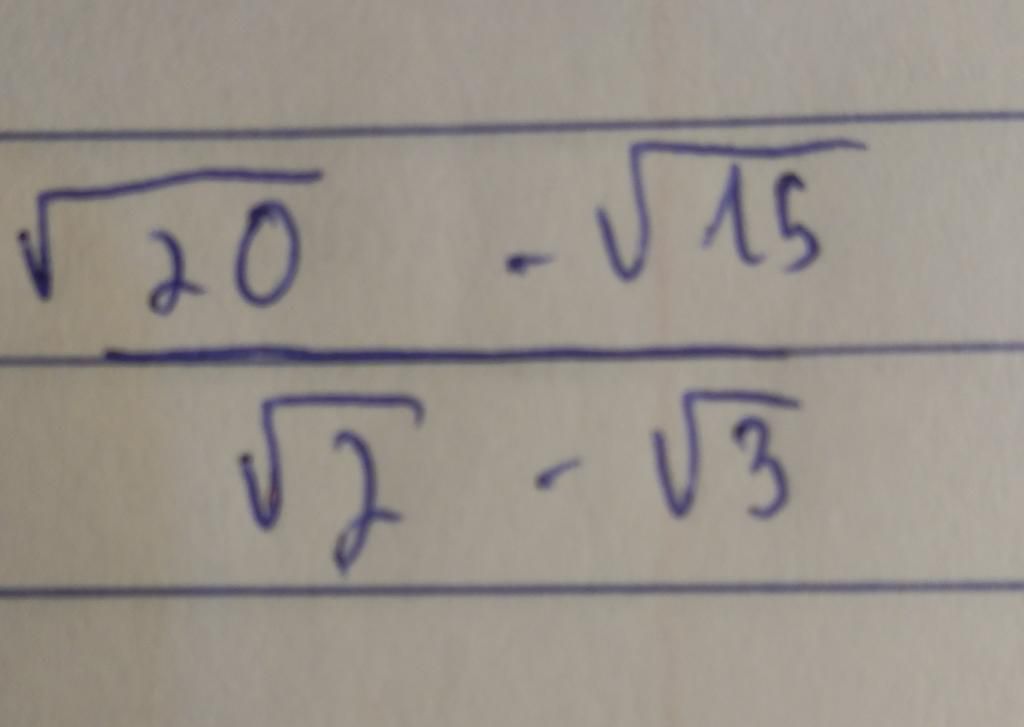 √20 - √15
√2 - √3